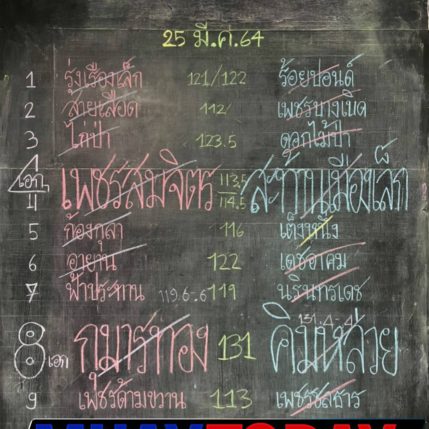 25 มี.ค.64
1 รุ่งเรืองเล็ก 121/122 ร้อยปอนด์
2 สายเลือด 112 เพชรบางเบิด
3 ไก่ป่า 123.5 ดอกไม้ป่า
เอก 4 เพชรสมจิตร 113.5 114.5 สะท้านเมืองเล็ก
5 ก้องกุลา 116 เต็งหนึ่ง
6 122 เดชอาคม
7 ฟ้าประทาน 119.6-6 119 นรินทรเดช
131.4-4
8 เอก กุมารทอง 131 คิมหล่วย
9 เพชรด้ามขวาน 113
MUAYTODAY